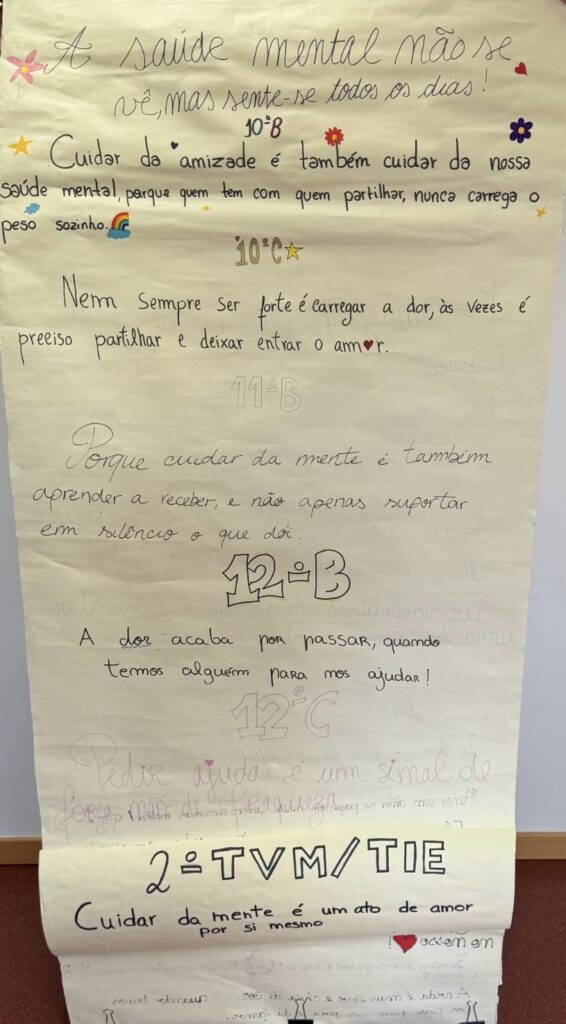 A saúde mental não se
vê, mas sente-se todos os dias!
10ºB
Cuidar da amizade é também cuidar da nossa
saúde mental, porque quem tem com quem partilhar, nunca carrega o
peso sozinho.
10ºC
Nem sempre ser forte é carregar a dor, às vezes é
preciso partilhar e deixar entrar o amor.
11ºB
Porque cuidar da mente é também
aprender a receber, e não apenas suportar
em silêncio o que dói.
12ºB
A dor acaba por passar, quando
temos alguém para nos ajudar!
12ºC
Pedir ajuda é um sinal de
força não de fraqueza
2ºTVM/TIE
Cuidar da mente é um ato de amor
por si mesmo